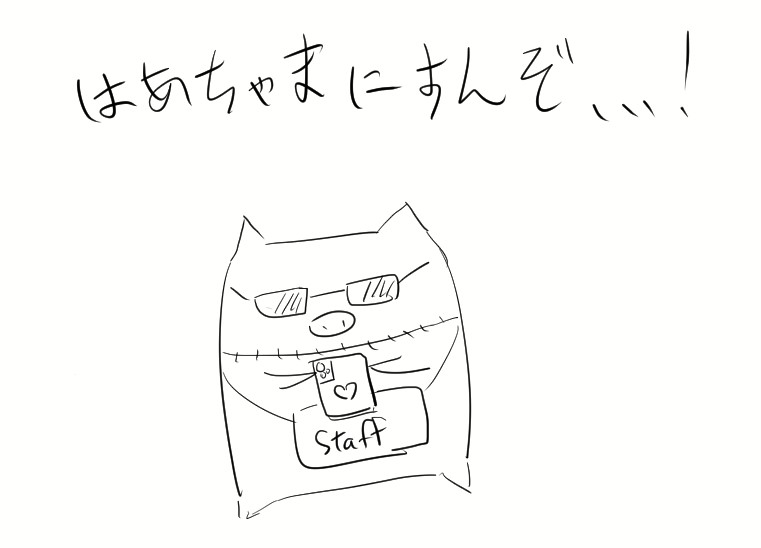 はあちゃまにすんぞ、、、!
staff